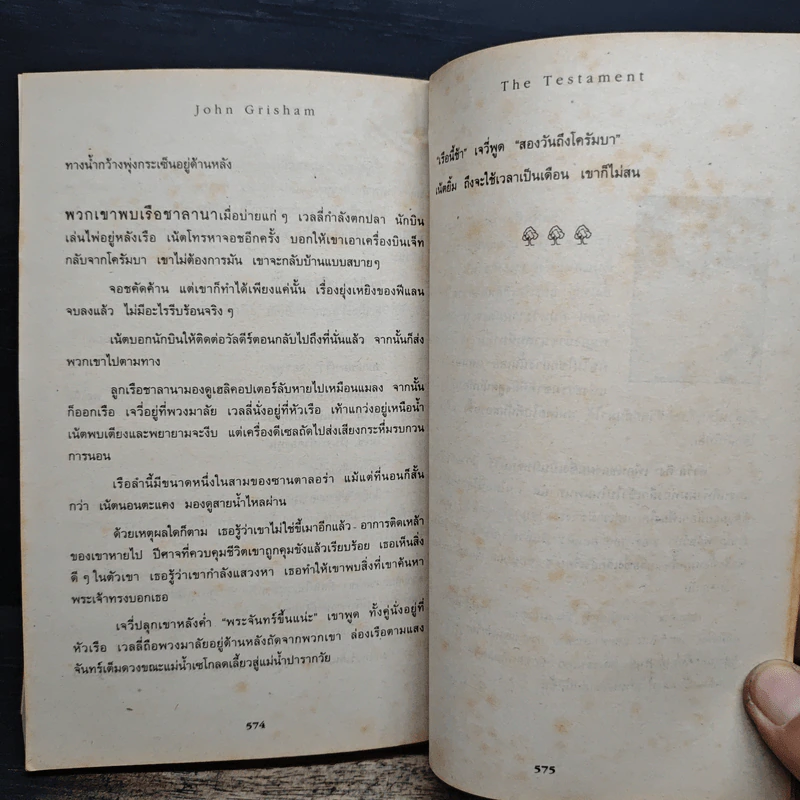 John Grisham
ทางน้ำกว้างพุ่งกระเซ็นอยู่ด้านหลัง
พวกเขาพบเรือซาลานาเมื่อบ่ายแก่ ๆ เวลลี่กำลังตกปลา นักบิน
เล่นไพ่อยู่หลังเรือ เน้ตโทรหาจอชอีกครั้ง บอกให้เขาเอาเครื่องบินเจ็ท
กลับจากโครัมบา เขาไม่ต้องการมัน เขาจะกลับบ้านแบบสบายๆ
จอชคัดค้าน แต่เขาก็ทำได้เพียงแค่นั้น เรื่องยุ่งเหยิงของฟีแลน
จบลงแล้ว ไม่มีอะไรรีบร้อนจริง ๆ
เน้ตบอกนักบินให้ติดต่อวัลดีร์ตอนกลับไปถึงที่นั่นแล้ว จากนั้นก็ส่ง
พวกเขาไปตามทาง
ลูกเรือซาลานามองดูเฮลิคอปเตอร์ลับหายไปเหมือนแมลง จากนั้น
ก็ออกเรือ เจวี่อยู่ที่พวงมาลัย เวลลี่นั่งอยู่ที่หัวเรือ เท้าแกว่งอยู่เหนือน้ำ
เน้ตพบเตียงและพยายามจะงีบ แต่เครื่องดีเซลถัดไปส่งเสียงกระหึ่มรบกวน
การนอน
เรือลำนี้มีขนาดหนึ่งในสามของซานตาลอร่า แม้แต่ที่นอนก็สั้น
กว่า เน้ตนอนตะแคง มองดูสายน้ำไหลผ่าน
ด้วยเหตุผลใดก็ตาม เธอรู้ว่าเขาไม่ใช่ขี้เมาอีกแล้ว อาการติดเหล้า
ของเขาหายไป ปีศาจที่ควบคุมชีวิตเขาถูกคุมขังแล้วเรียบร้อย เธอเห็นสิ่ง
ดี ๆ ในตัวเขา เธอรู้ว่าเขากำลังแสวงหา เธอทำให้เขาพบสิ่งที่เขาค้นหา
พระเจ้าทรงบอกเธอ
เจวี่ปลุกเขาหลังค่ำ "พระจันทร์ขึ้นแน่ะ" เขาพูด ทั้งคู่นั่งอยู่ที่
หัวเรือ เวลลี่ถือพวงมาลัยอยู่ด้านหลังถัดจากพวกเขา ล่องเรือตามแสง
จันทร์เต็มดวงขณะแม่น้ำเซโกลดเลี้ยวสู่แม่น้ำปารากวัย
574
The Testament
"เรือนี้ช้า" เจวี่พูด "สองวันถึงโครัมบา"
เน้ตยิ้ม ถึงจะใช้เวลาเป็นเดือน เขาก็ไม่สน
575